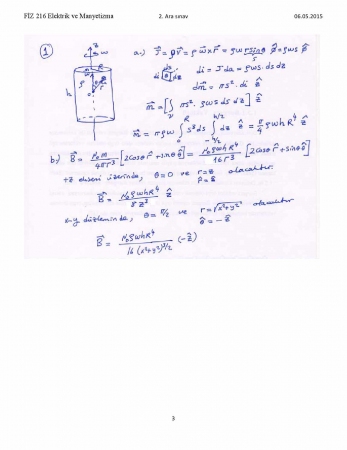 FİZ 216 Elektrik ve Manyetizma 2. Ara sınav 06.05.2015
① a-) J⃗ = ρV⃗ = ρ w⃗ × r⃗ = ρw r sinθ φ̂ = ρws φ̂
s
z
w
R
h
ds
di dz
di = J da = ρws · ds dz
dm⃗ = πs² · di ẑ
m⃗ = [∫∫ πs² · ρws ds dz] ẑ
m⃗ = πρw ∫₀ᴿ s³ds ∫₋ₕ/₂^ʰ/² dz ẑ = π/4 ρwhR⁴ ẑ
b) B⃗ = μ₀m/4πr³ [2cosθ r̂ + sinθ θ̂] = μ₀ρwhR⁴/16r³ [2cosθ r̂ + sinθ θ̂]
+z ekseni üzerinde, θ=0 ve r=z r̂=ẑ olacaktır.
B⃗ = μ₀ρwhR⁴/8z³ ẑ
x-y düzleminde, θ=π/2 ve r=√x²+y² θ̂=-ẑ olacaktır
B⃗ = μ₀ρwhR⁴/16(x²+y²)³/² (-ẑ)
3